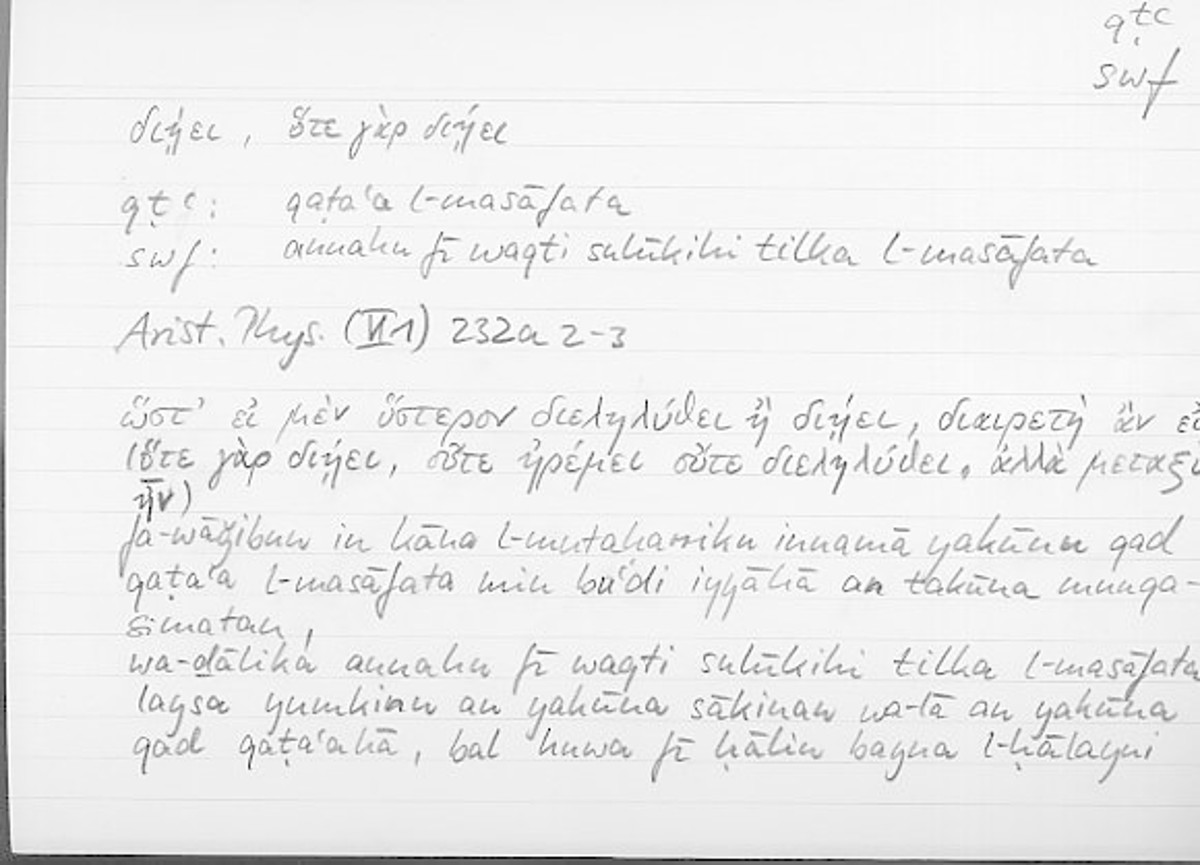 qṭc
swf
διῄει, ὅτε γὰρ διῄει
qṭc: qaṭaʿa l-masāfata
swf: annahu fī waqti sulūkihi tilka l-masāfata
Arist. Phys. (VI 1) 232a 2-3
ὥστ' εἰ μὲν ὕστερον διελήλύθει ἢ διῄει, διαιρετὴ ἂν εἴ
(ὅτε γὰρ διῄει, οὔτε ἠρέμει οὔτε διελήλύθει, ἀλλὰ μεταξὺ
ἦν)
fa-wāǧibun in kāna l-mutaḥarriku innamā yakūnu qad
qaṭaʿa l-masāfata min buʿdi iyyāhā an takūna munqa-
simatan,
wa-ḏālika annahu fī waqti sulūkihi tilka l-masāfata
laysa yumkinu an yakūna sākinan wa-lā an yakūna
qad qaṭaʿahā, bal huwa fī ḥālin bayna l-ḥālayni